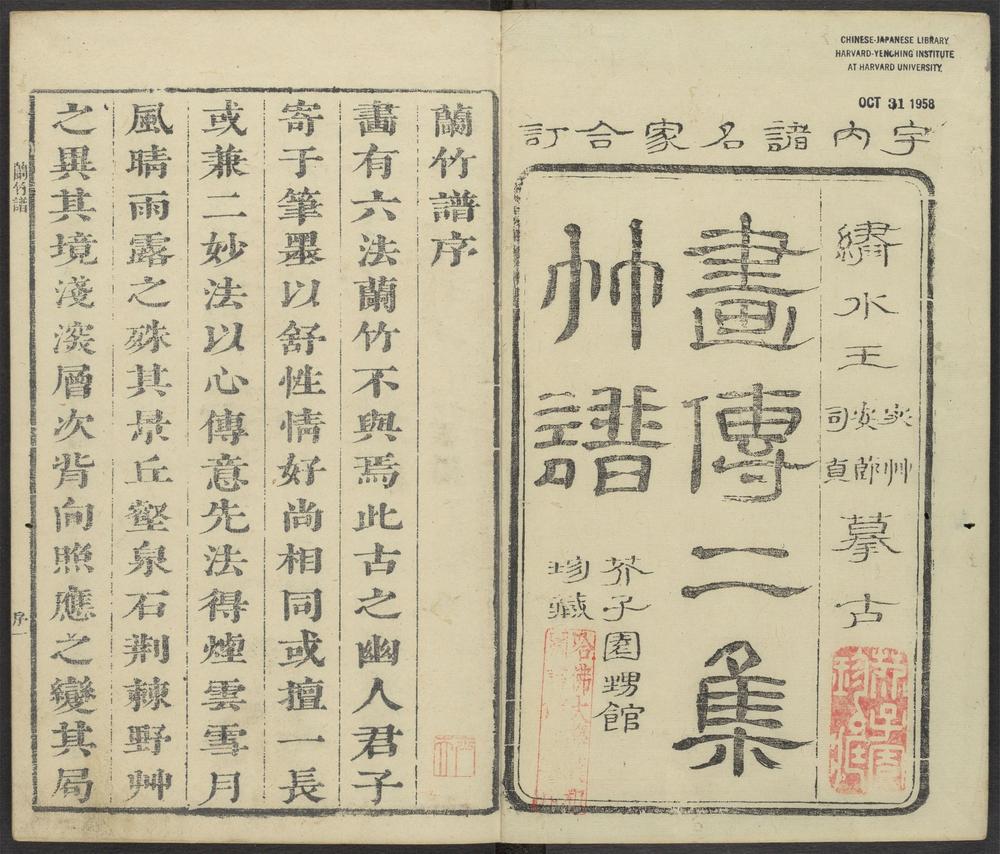 CHINESE-JAPANESE LIBRARY
HARVARD-YENCHING INSTITUTE
AT HARVARD UNIVERSITY
OCT 31 1958
宇內諸名家合訂
繡水王宓艸安節司直摹古
畫傳二集
竹譜
芥子園甥館
珍藏
蘭竹譜序
畫有六法蘭竹不與焉此古之幽人君子
寄于筆墨以舒性情好尚相同或擅一長
或兼二妙法以心傳意先法得煙雲雪月
風晴雨露之殊其景丘壑泉石荆棘野艸
之異其境淺深層次背向照應之變其局
蘭竹譜
序一